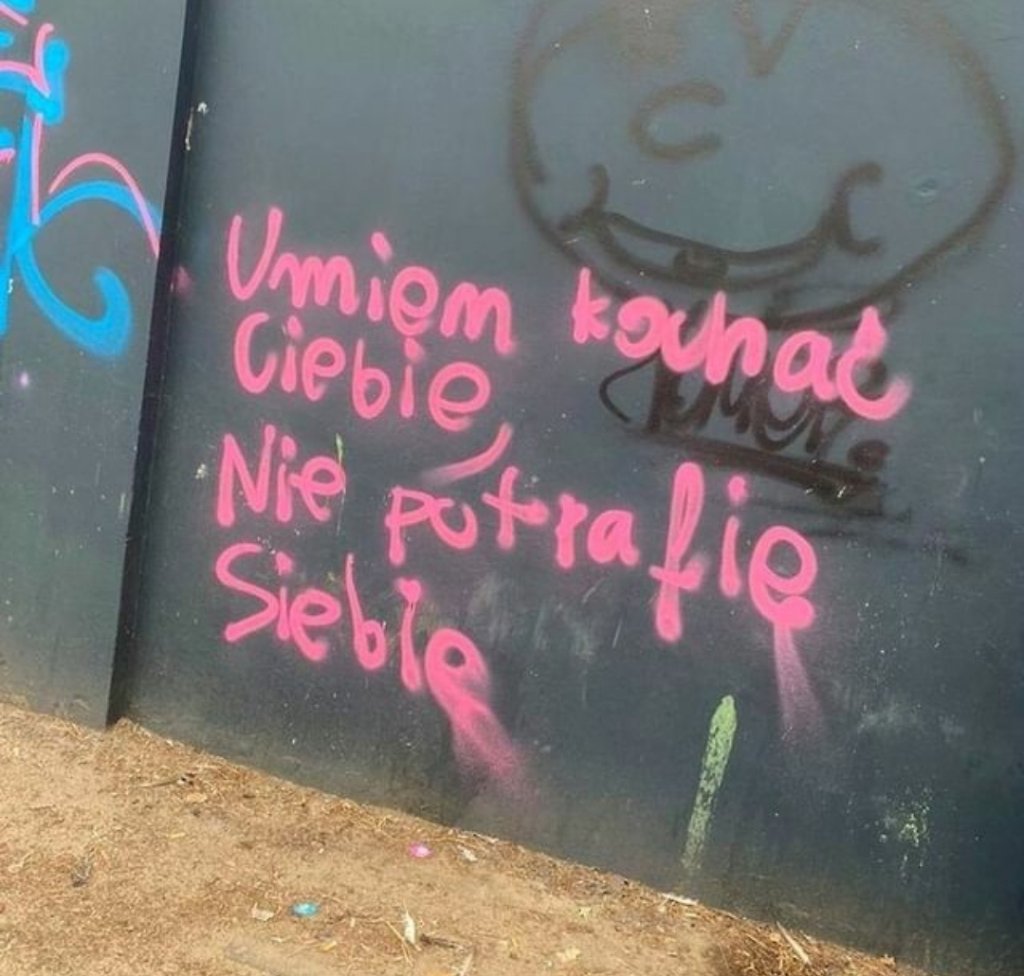 Umiem kochać
Ciebie
Nie potrafię
Siebie